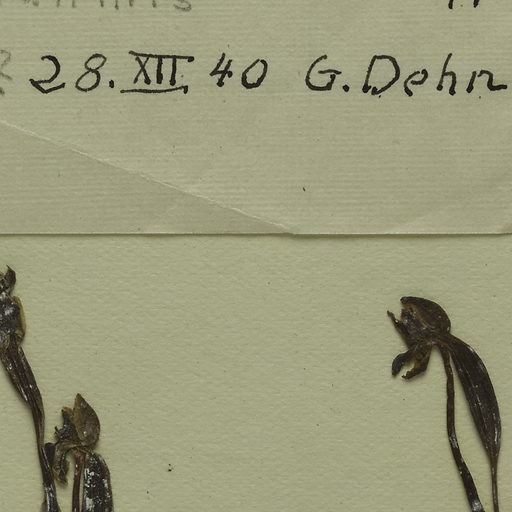 28.XII 40 G. Dehn